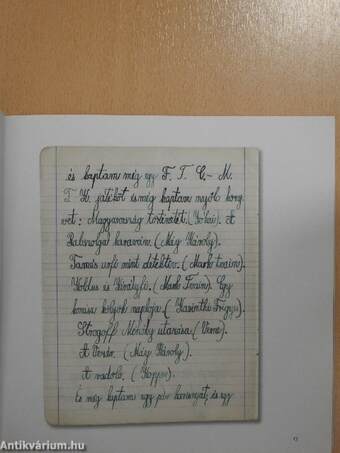 és kaptam még egy F. T. C. – M.
T. K. játékot és még kaptam nyolc köny
vet: Magyarország történetét. (Jókai). A
Rabszolga karaván. (Máy Károly).
Tamás urfi mint detektiv. (Mark Twain).
Koldus és Királyfi. (Mark Twain). Egy
komisz kölyök naplója. (Karinthi Frigyes).
Strogoff Mihály utazása (Verne).
A Vezér. (Máy Károly).
A vadölő. (Kopper).
és még kaptam egy pár harisnyát, és egy
13
Antikvárium.hu